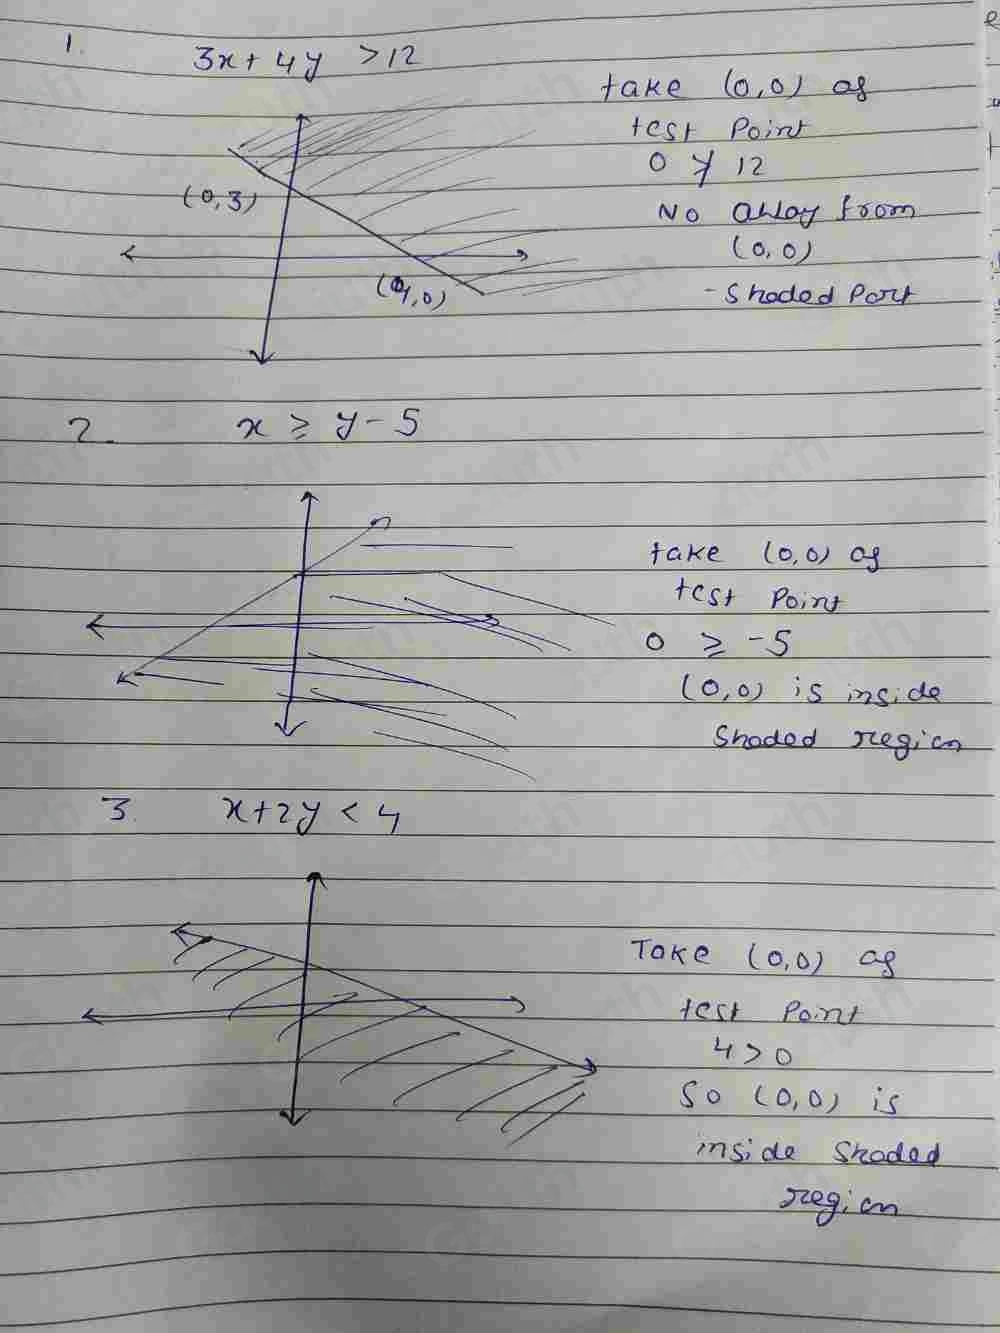 1.
3x + 4y > 12
take (0,0) as
test Point
0 ≯ 12
No away from
(0,0)
- Shaded Part
(0,3)
(4,0)
2.
x ≥ y - 5
take (0,0) as
test Point
0 ≥ -5
(0,0) is inside
Shaded region
3.
x + 2y < 4
Take (0,0) as
test Point
4 > 0
So (0,0) is
inside Shaded
region